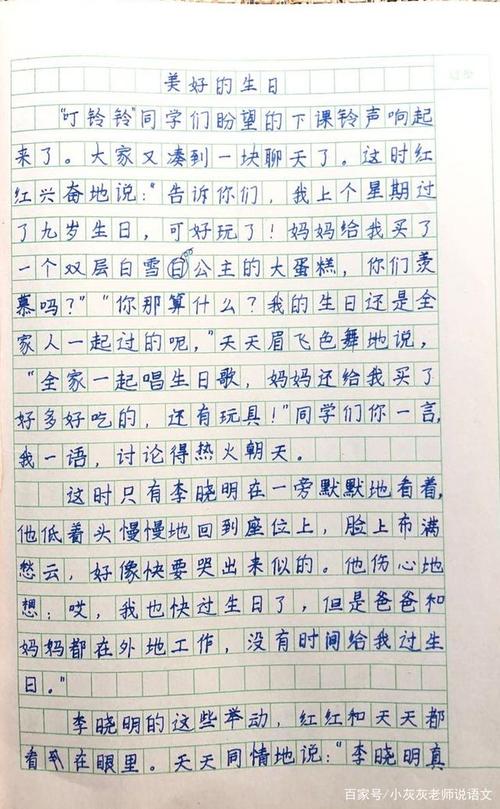 美好的生日
"叮铃铃"同学们盼望的下课铃声响起
来了。大家又凑到一块聊天了。这时红
红兴奋地说:"告诉你们,我上个星期过
了九岁生日,可好玩了!妈妈给我买了
一个双层白雪公主的大蛋糕,你们羡
慕吗?""你那算什么?我的生日还是全
家人一起过的呢,"天天眉飞色舞地说,
"全家一起唱生日歌,妈妈还给我买了
好多好吃的,还有玩具!"同学们你一言,
我一语,讨论得热火朝天。
这时只有李晓明在一旁默默地看着,
他低着头慢慢地回到座位上,脸上布满
愁云,好像快要哭出来似的。他伤心地
想:哎,我也快过生日了,但是爸爸和
妈妈都在外地工作,没有时间给我过生
日。"
李晓明的这些举动,红红和天天都
看在眼里。天天同情地说:"李晓明真
百家号/小灰灰老师说语文